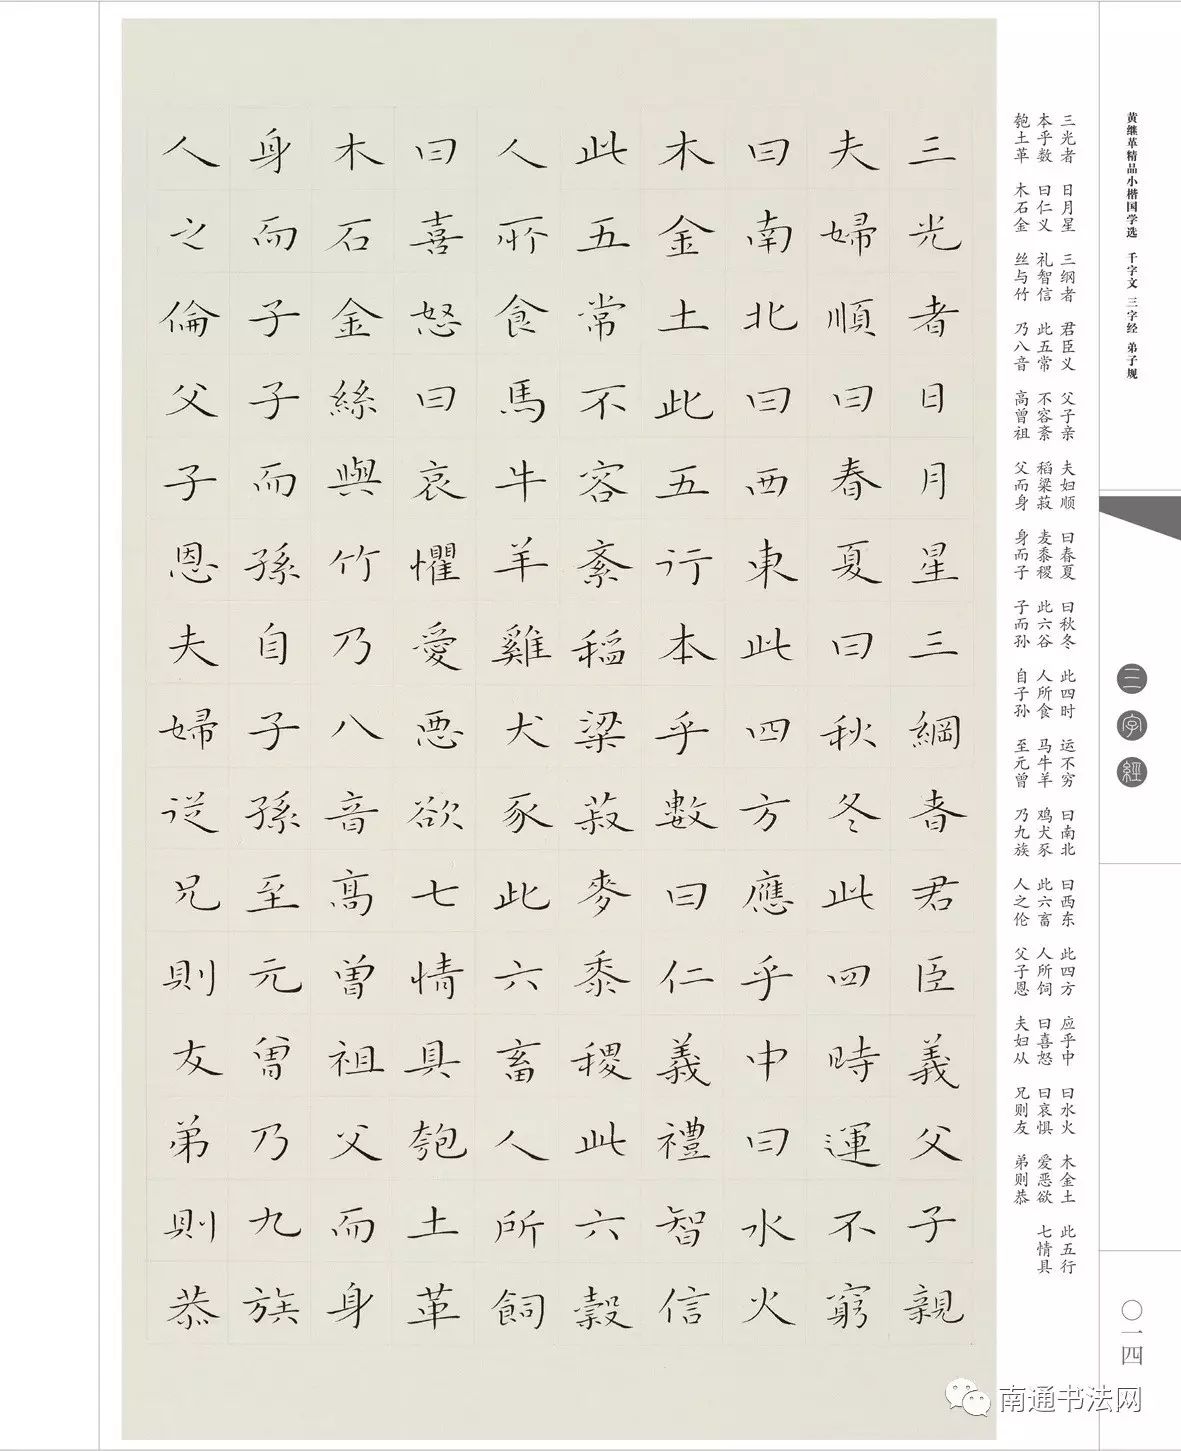 黄继革精品小楷国学选 千字文 三字经 弟子规
三字經
〇一四
三光者 日月星 三纲者 君臣义 父子亲 夫妇顺 曰春夏 曰秋冬 此四时 运不穷 曰南北 曰西东 此四方 应乎中 曰水火 木金土 此五行
本乎数 曰仁义 礼智信 此五常 不容紊 稻粱菽 麦黍稷 此六谷 人所食 马牛羊 鸡犬豕 此六畜 人所饲 曰喜怒 曰哀惧 爱恶欲 七情具
匏土革 木石金 丝与竹 乃八音 高曾祖 父而身 身而子 子而孙 自子孙 至元曾 乃九族 人之伦 父子恩 夫妇从 兄则友 弟则恭
三光者日月星三綱者君臣義父子親
夫婦順曰春夏曰秋冬此四時運不窮
曰南北曰西東此四方應乎中曰水火
木金土此五行本乎數曰仁義禮智信
此五常不容紊稻粱菽麥黍稷此六穀
人所食馬牛羊雞犬豕此六畜人所飼
曰喜怒曰哀懼愛惡欲七情具匏土革
木石金絲與竹乃八音高曾祖父而身
身而子子而孫自子孫至元曾乃九族
人之倫父子恩夫婦從兄則友弟則恭
南通书法网